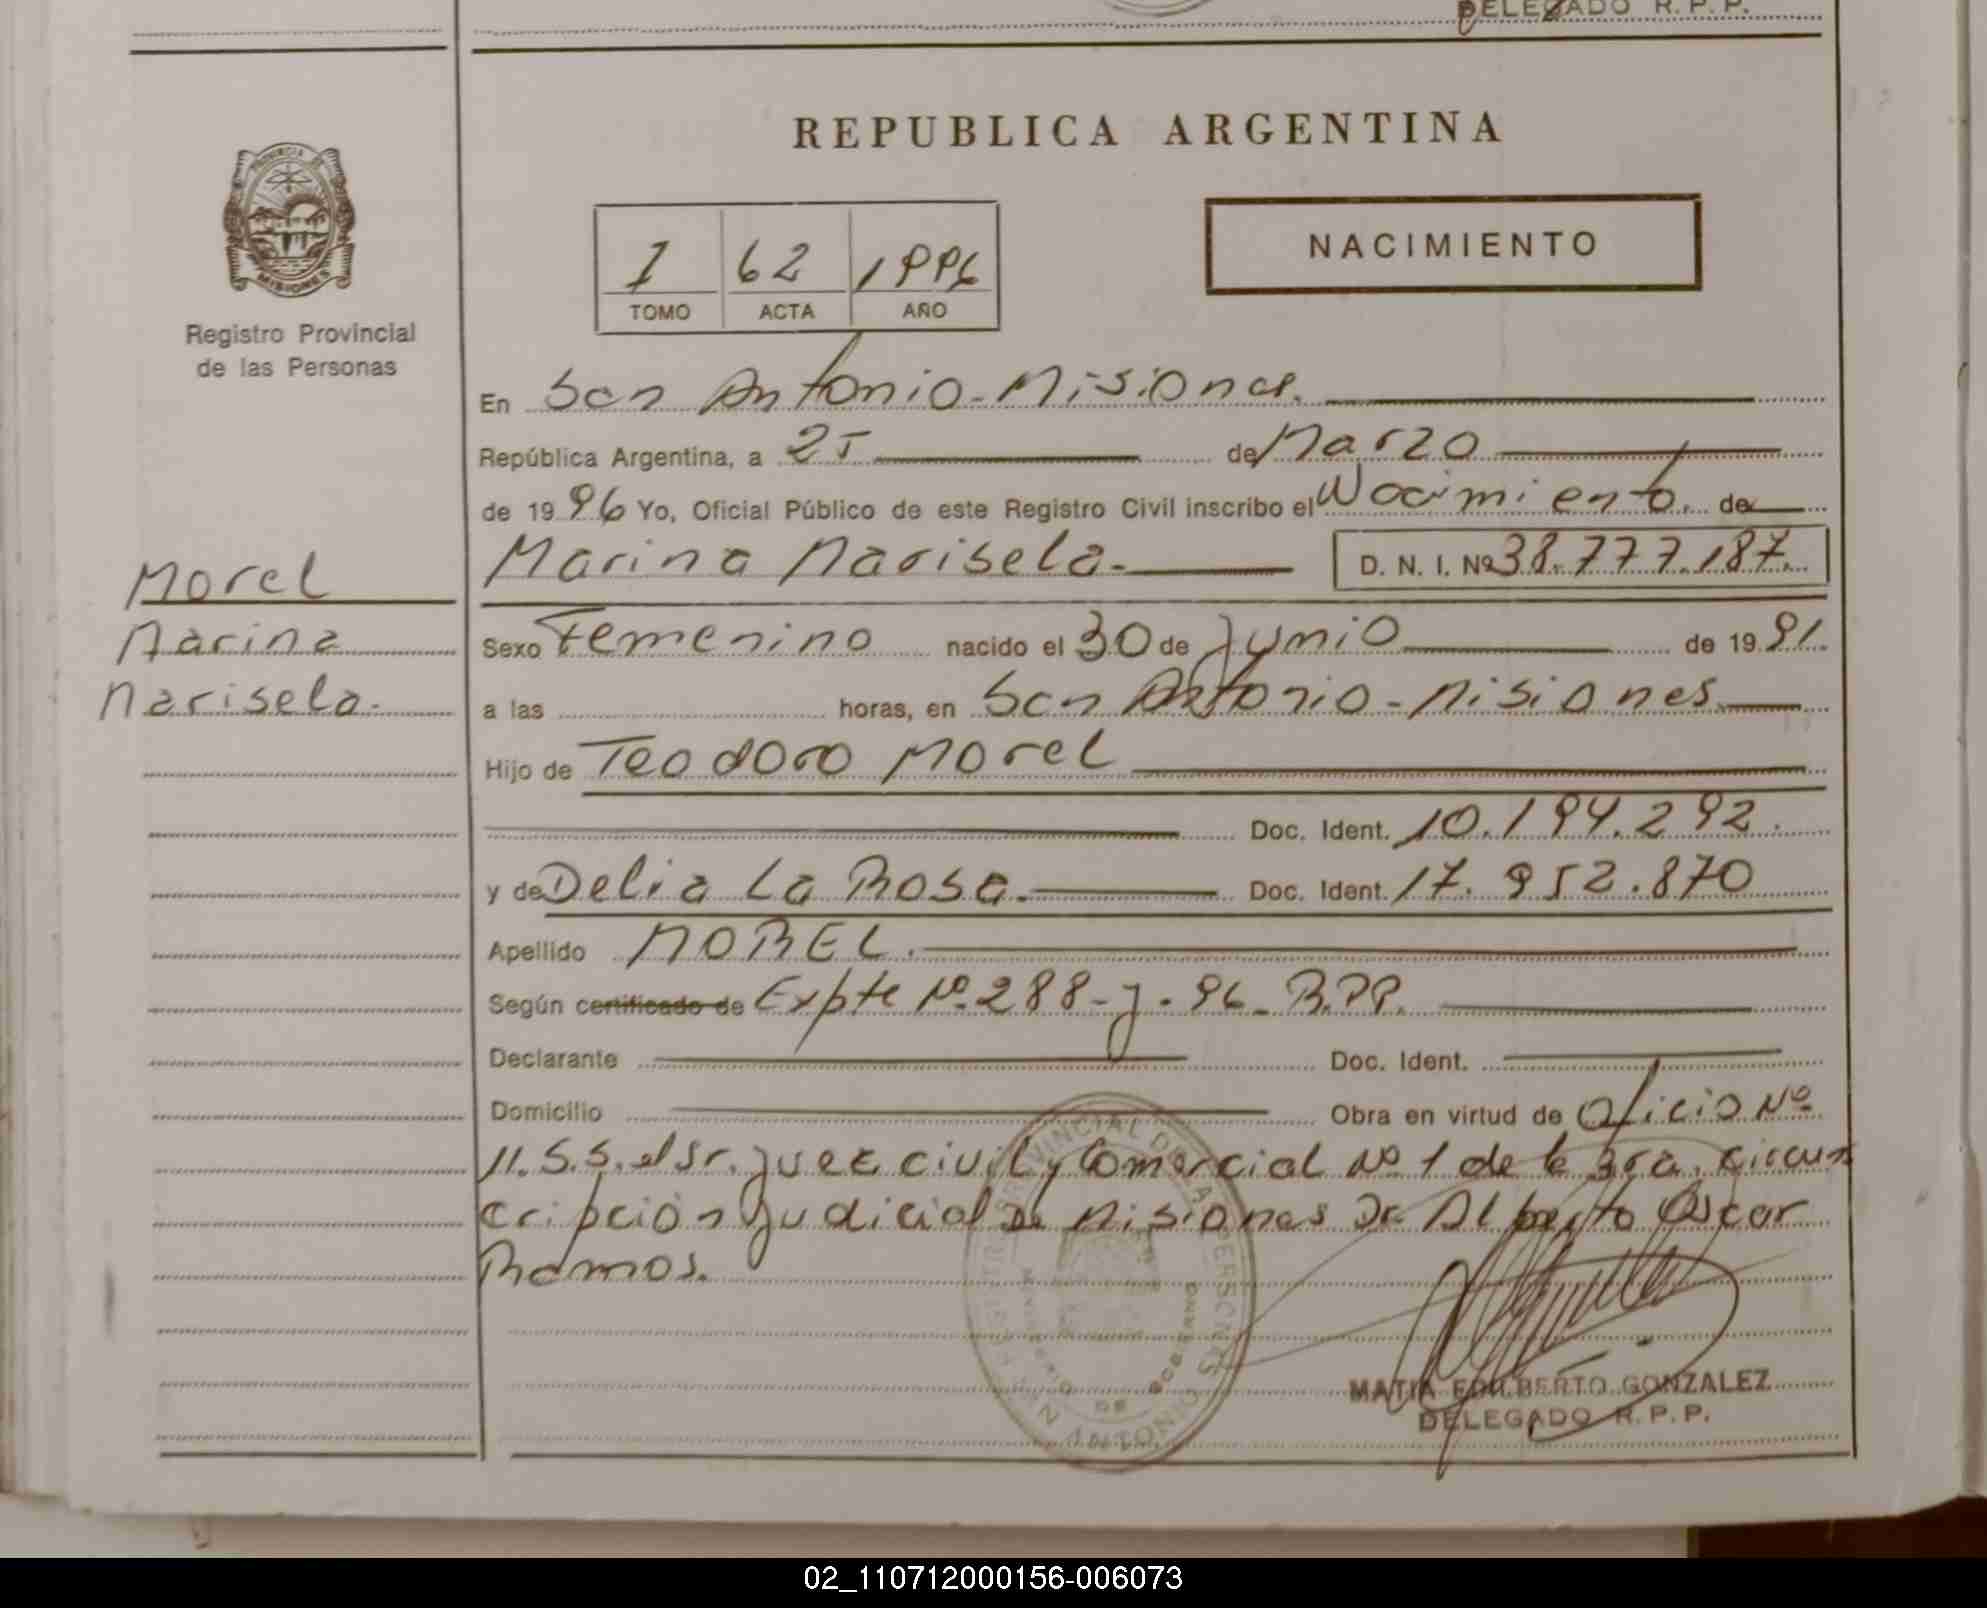 DELEGADO R.P.P.
REPUBLICA ARGENTINA
PROVINCIA DE
MISIONES
Registro Provincial
de las Personas
I 62 1996
TOMO ACTA AÑO
NACIMIENTO
En San Antonio - Misiones.
República Argentina, a 25 de Marzo
de 1996 Yo, Oficial Público de este Registro Civil inscribo el Nacimiento. de
Marina Marisela. D. N. I. Nº 38.777.187.
Morel
Marina
Marisela.
Sexo Femenino nacido el 30 de Junio de 1991.
a las horas, en San Antonio - Misiones.
Hijo de Teodoro Morel
Doc. Ident. 10.194.292.
y de Delia La Rosa. Doc. Ident. 17.952.870
Apellido MOREL.
Según certificado de Expte Nº 288-J-96- R.PP.
Declarante Doc. Ident.
Domicilio Obra en virtud de Oficio Nº
11. S.S. el Sr. Juez civil y Comercial Nº 1 de la 3ra. Circuns
cripción Judicial de Misiones Dr. Alberto Oscar
Ramos.
MINISTERIO DE GOBIERNO
SAN ANTONIO
MATIA EDILBERTO GONZALEZ
DELEGADO R.P.P.
02_110712000156-006073